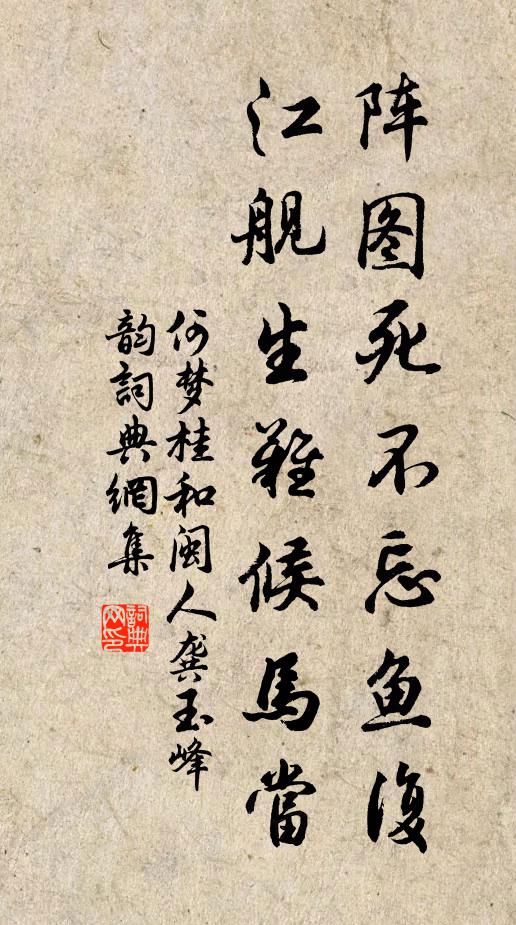 阵图死不忘鱼復
江舰生難候馬當
何梦桂和闽人龚玉峰
韵詞典網集
詞典网印